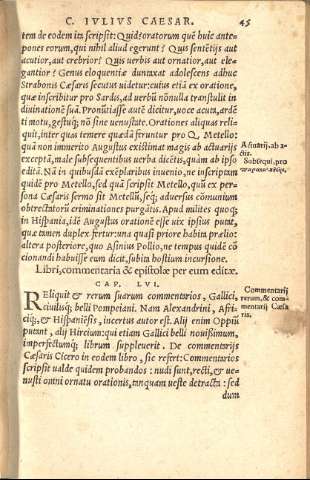 C. IVLIVS CAESAR. 45
tem de eodem ita scripsit: Quid? oratorum quē huic ante-
pones eorum, qui nihil aliud egerunt? Quis sentētijs aut
acutior, aut crebrior? Quis uerbis aut ornatior, aut ele-
gantior? Genus eloquentiæ duntaxat adolescens adhuc
Strabonis Cæsaris secutus uidetur: cuius etiā ex oratione,
quæ inscribitur pro Sardis, ad uerbū nōnulla transtulit in
diuinationē suā. Pronūtiasse autē dicitur, uoce acuta, ardē
ti motu, gestuq; nō sine uenustate. Orationes aliquas reli-
quit, inter quas temere quædā feruntur pro Q. Metello:
quā non immerito Augustus existimat magis ab actuarijs
exceptā, male subsequentibus uerba dicētis, quàm ab ipso
editā. Nā in quibusdā exēplaribus inuenio, ne inscriptam
quidē pro Metello, sed quā scripsit Metello, quū ex per-
sona Cæsaris sermo sit Metellū, seq; aduersus cōmunium
obtrectatorū criminationes purgātis. Apud milites quoq;
in Hispania, idē Augustus orationē esse uix ipsius putat,
quæ tamen duplex fertur: una quasi priore habita prælio:
altera posteriore, quo Asinius Pollio, ne tempus quidē cō
cionandi habuisse eum dicit, subita hostium incursione.
Libri, commentaria & epistolæ per eum editæ.
CAP. LVI.
REliquit & rerum suarum commentarios, Gallici,
ciuilisq; belli Pompeiani. Nam Alexandrini, Afri-
ciq;, & Hispaniēsis, incertus autor est. Alij enim Oppiū
putant, alij Hircium: qui etiam Gallici belli nouißimum,
imperfectumq; librum suppleuerit. De commentarijs
Cæsaris Cicero in eodem libro, sic refert: Commentarios
scripsit ualde quidem probandos: nudi sunt, recti, & ue-
nusti omni ornatu orationis, tanquam ueste detracta: sed
dum
Actuarij, ab a-
ctis.
Subsequi, pro
Commentarij
rerum, & com-
mentarij Cæsa
ris.